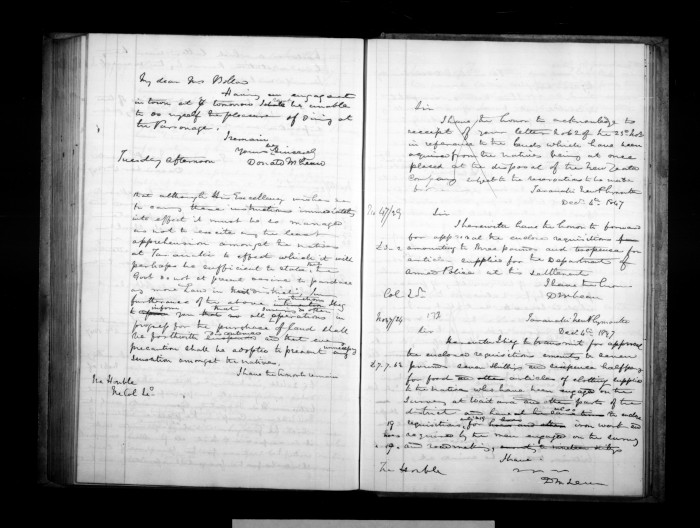 My dear Mrs Bolland
Having an engagement
in town at 7 tomorrow I shall be unable
to do myself the pleasure of dining at
the Parsonage.
I remain
Yours Sincerely
Donald McLean
Tuesday afternoon
that although His Excellency wishes me
to carry these instructions immediately
into effect it must be so managed
as not to excite any the least
apprehension amongst the natives
at Taranaki to effect which it will
perhaps be sufficient to state that the
Govt do not at present desire to purchase
any more Land in that district. In
furtherance of the above instructions I beg
to inform you that all operations in
progress for the purchase of land shall
be forthwith and that every
precaution shall be adopted to prevent any
sensation amongst the natives.
I have the honor to remain
The Honble
The Col Sec
Sir
I have the honor to acknowledge the
receipt of your letter No 62 of the 25th Nov
in reference to the lands which have been
acquired from the natives being at once
placed at the disposal of the New Zealand
Company subject to the reservations to be made
Taranaki New Plymouth
Decr 4th 1847
No 47/29
Sir
I herewith have the honor to forward
for approval the enclosed requisitions for
£3 " 2 amounting to three pounds and twopence for
articles supplied for the Department of
Armed Police at his settlement
I have the honor
D McLean
Col Sec
Taranaki New Plymouth
No 47/24
Decr 4th 1847
Sir
Herewith I beg to transmit for approval
the enclosed requisitions amounting to seven
£7.7.6½ pounds seven shillings and sixpence halfpenny
for food and other articles of clothing supplied
to the natives who have been engaged on the
survey at Waitara and other parts of the
district and have also the to enclose
requisitions for iron work and
required by the men engaged on the survey
and roadmaking,
I have
The Honble
D McLean